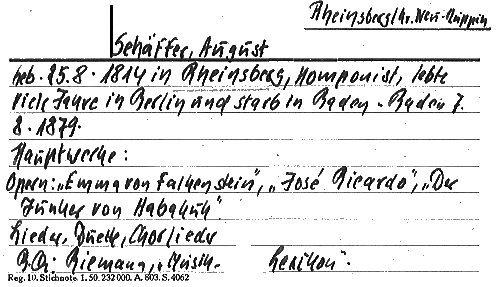 Rheinsberg/Kr. Neu-Ruppin
Schäffer, August
geb. 25.8.1814 in Rheinsberg, Komponist, lebte
viele Jahre in Berlin und starb in Baden-Baden 7.
8.1879.
Hauptwerke:
Opern: „Emma von Falkenstein", „José Ricardo", „Der
Junker von Habakuk"
Lieder, Duette, Chorlieder
Riemann, „Musik- Lexikon".
Reg. 10. Stichnote. 1. 50. 232 000. A. 803. S. 4062